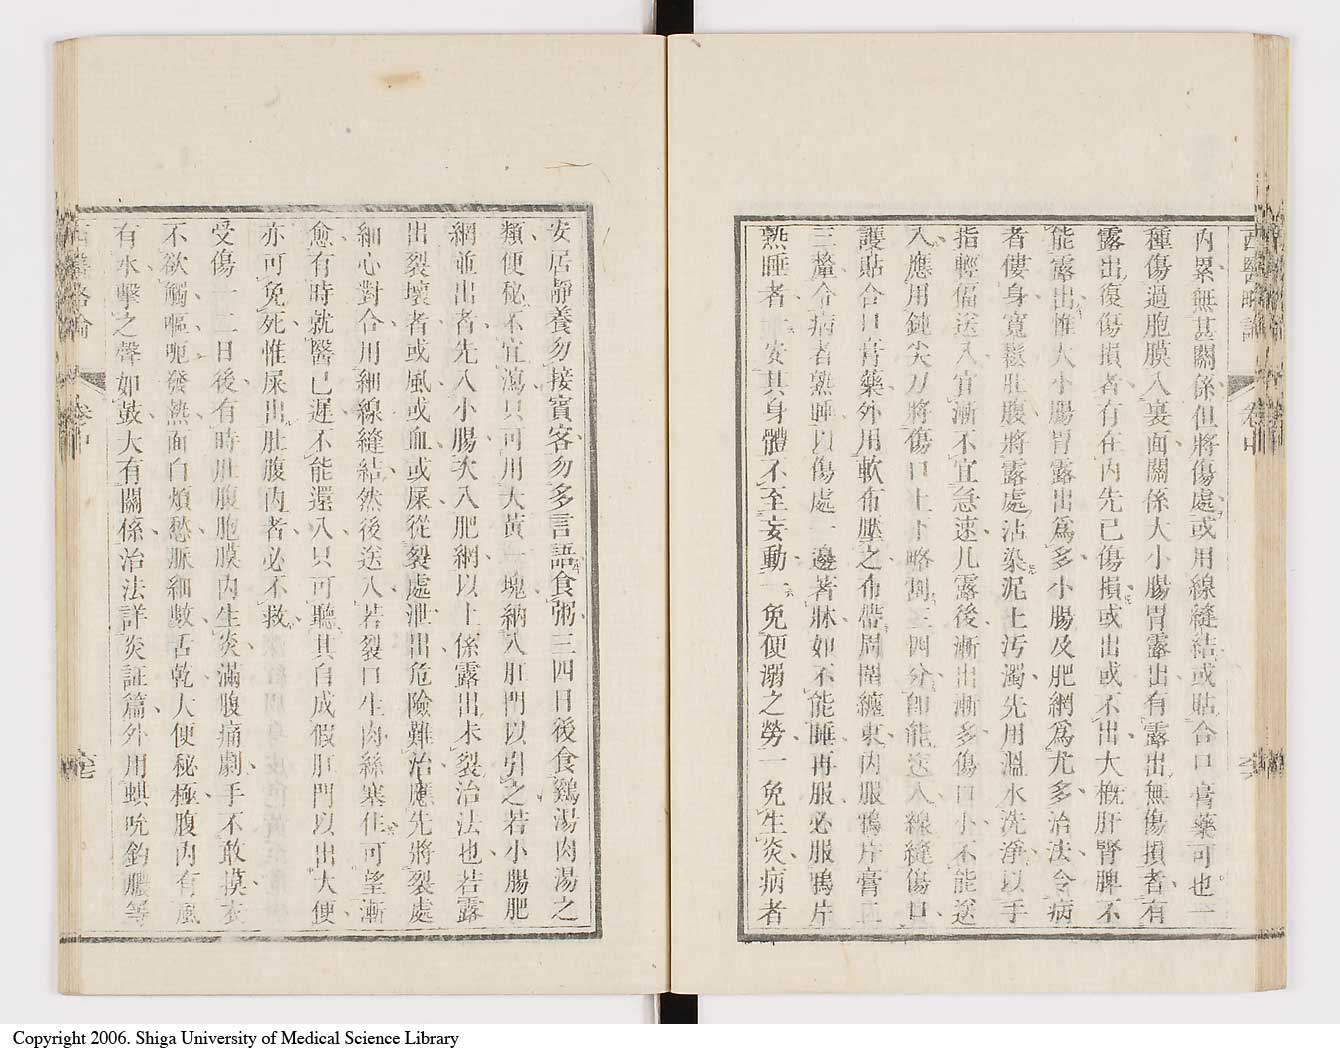 西醫略論
卷中
內累無甚關係但將傷處或用線縫結或貼合口膏藥可也一
種傷過胞膜入裏面關係大小腸胃露出有露出無傷損者有
露出復傷損者有在內先已傷損或出或不出大概肝腎脾不
能露出惟大小腸胃露出爲多小腸及肥網爲尤多治法令病
者僂身寬鬆肚腹將露處沾染泥土污濁先用溫水洗淨以手
指輕偪送入宜漸不宜急速凡露後漸出漸多傷口小不能送
入應用鈍尖刀將傷口上下略割三四分卽能送入線縫傷口
護貼合口膏藥外用軟布壓之布帶周圍纏束內服鴉片膏二
三釐令病者熟睡以傷處一邊著牀如不能睡再服必服鴉片
熟睡者一安其身體不至妄動一免便溺之勞一免生炎病者
安居靜養勿接賓客勿多言語食粥三四日後食鷄湯肉湯之
類便秘不宜瀉只可用大黃一塊納入肛門以引之若小腸肥
網並出者先入小腸次入肥網以上係露出未裂治法也若露
出裂壞者或風或血或屎從裂處泄出危險難治應先將裂處
細心對合用細線縫結然後送入若裂口生肉絲塞住可望漸
愈有時就醫已遲不能還入只可聽其自成假肛門以出大便
亦可免死惟屎出肚腹內者必不救
受傷一二日後有時肚腹胞膜內生炎滿腹痛劇手不敢摸衣
不欲觸嘔呃發熱面白煩愁脈細數舌乾大便秘極腹內有風
有水擊之聲如鼓大有關係治法詳炎証篇外用蜞吮釣膿等
西醫略論
卷中
Copyright 2006. Shiga University of Medical Science Library